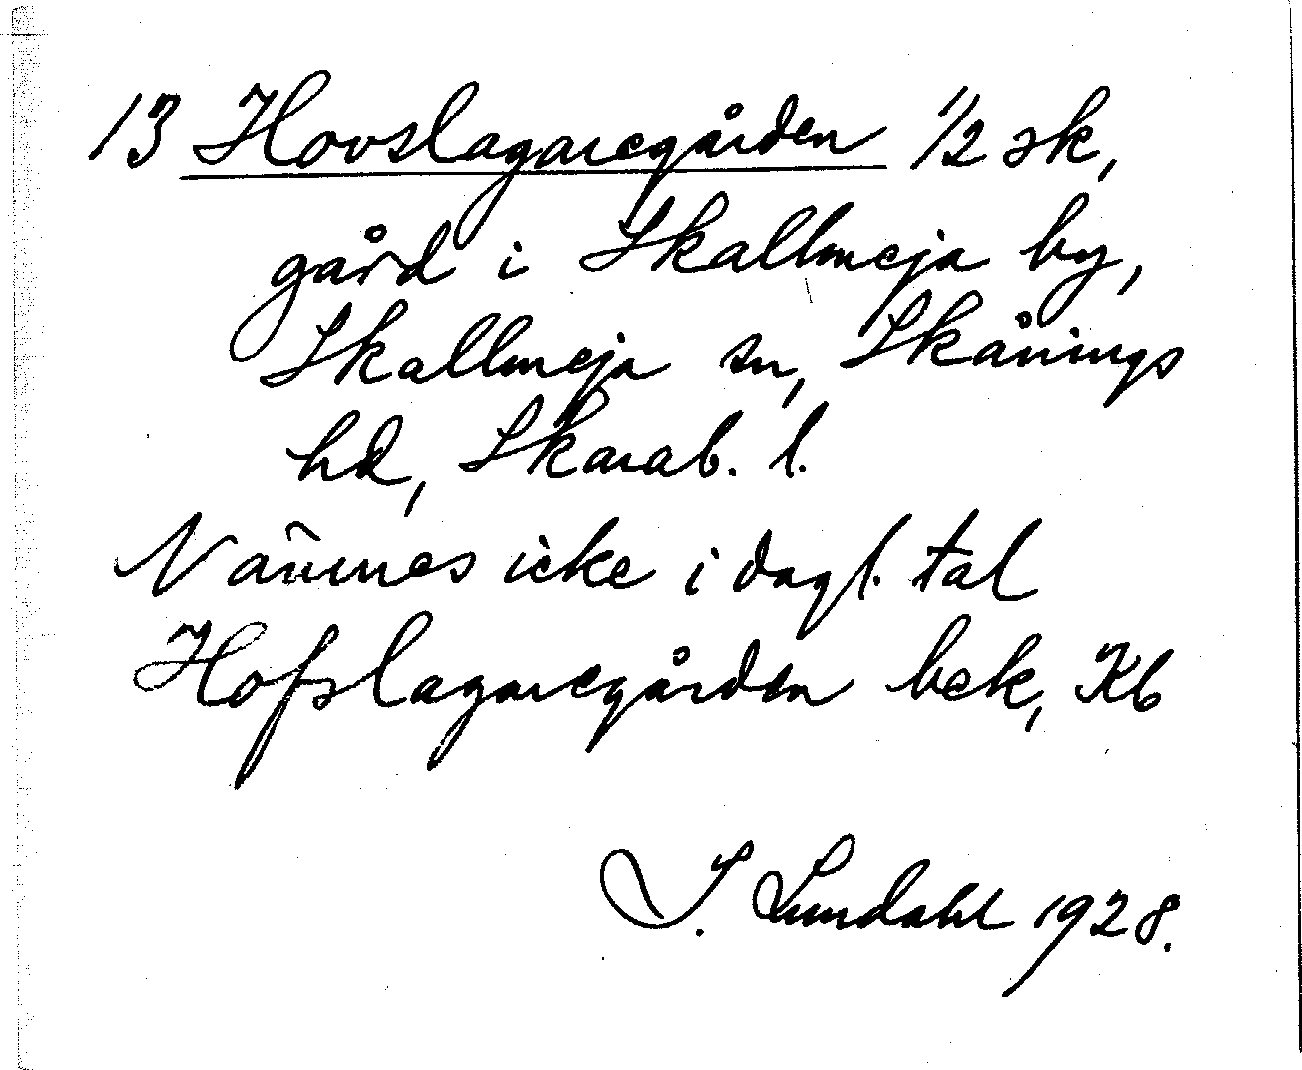 13 Hovslagaregården 1/2 sk,
gård i Skallmeja by,
Skallmeja sn, Skånings
hd, Skarab. l.
Nämnes icke i dagl. tal
Hofslagaregården bek, Kb
I. Lundahl 1928.